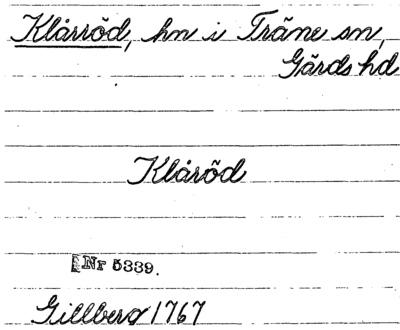 Klårröd, hn i Träne sn,
Gärds hd
Klåröd
Nr 5339.
Gillberg 1767